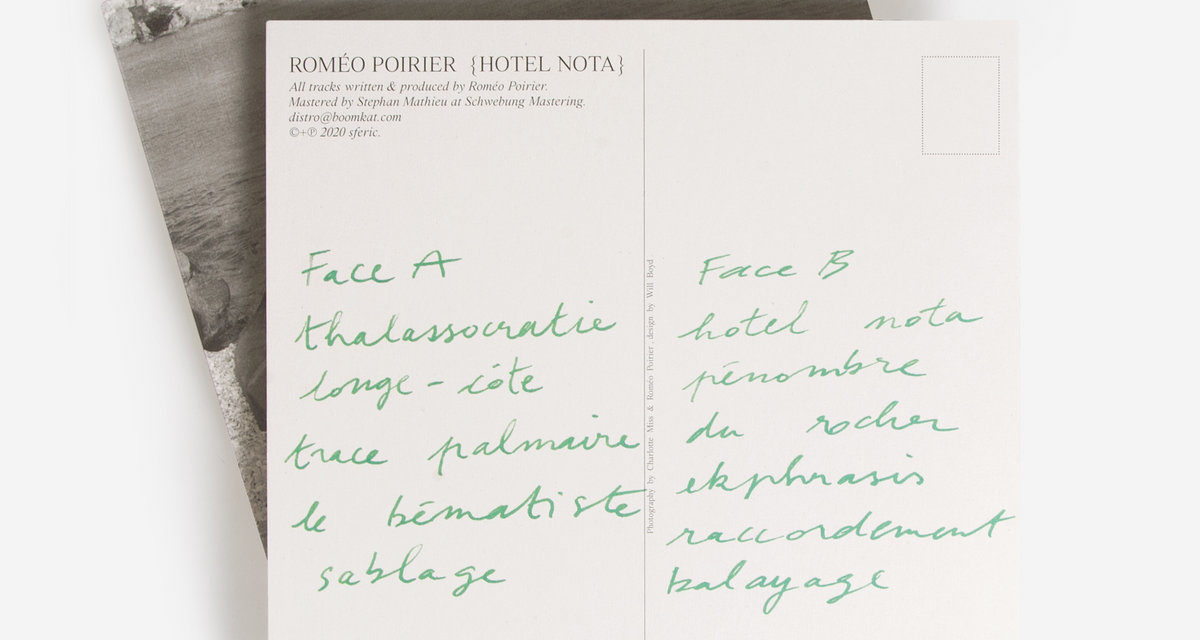 ROMÉO POIRIER {HOTEL NOTA}
All tracks written & produced by Roméo Poirier.
Mastered by Stephan Mathieu at Schwebung Mastering.
distro@boomkat.com
©+℗ 2020 sferic.
Face A
thalassocratie
longe-côte
trace palmaire
le bématiste
sablage
Photography by Charlotte Miss & Roméo Poirier, design by Will Boyd
Face B
hotel nota
pénombre
du rocher
ekphrasis
raccordement
balayage